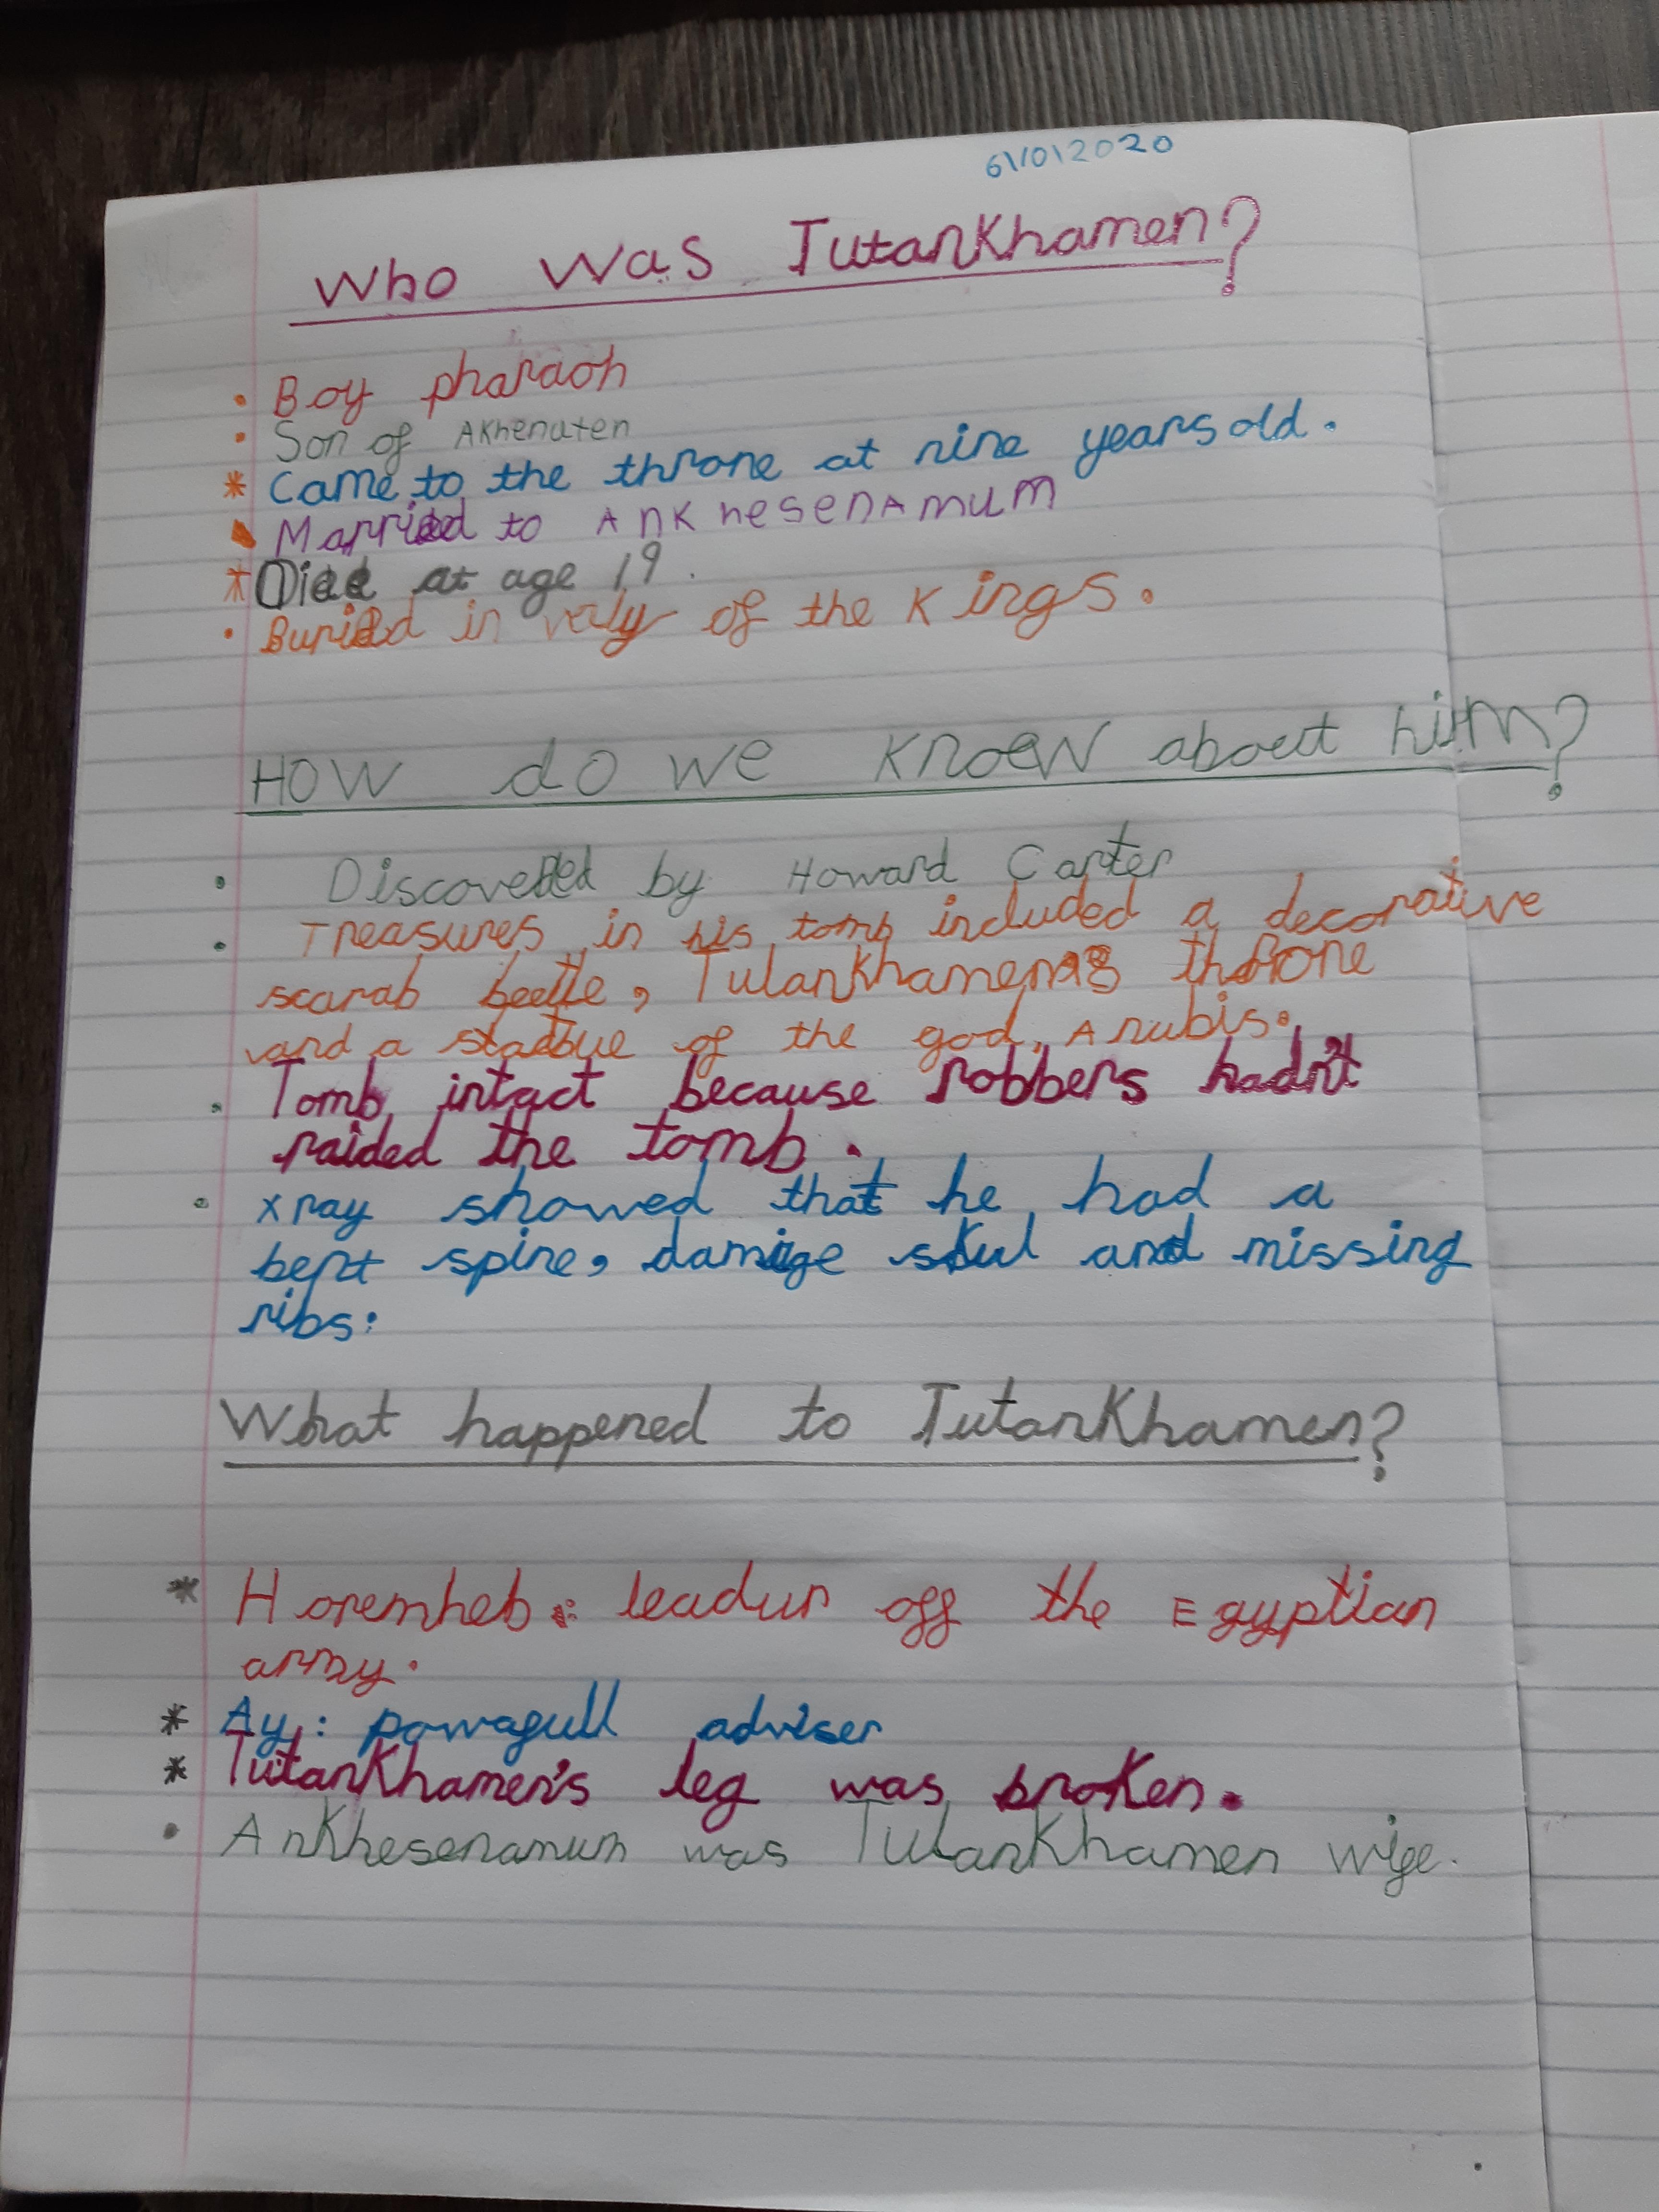 6\10\2020
Who was Tutankhamen?
Boy pharaoh
Son of Akhenaten
* Came to the throne at nine years old.
Married to Ankhesenamum
* Died at age 19.
Buried in valy of the Kings.
How do we know about him?
Discovered by Howard Carter
Treasures in his tomb included a decorative
scarab beetle, Tutankhamen's throne
and a statue of the god, Anubis.
Tomb intact because robbers hadn't
raided the tomb.
x ray showed that he had a
bent spine, damige skul and missing
ribs.
What happened to Tutankhamen?
* Horemheb: leadur off the Egyptian
army.
* Ay: powafull adviser
* Tutankhamen's leg was broken.
Ankhesenamun was Tutankhamen wife.